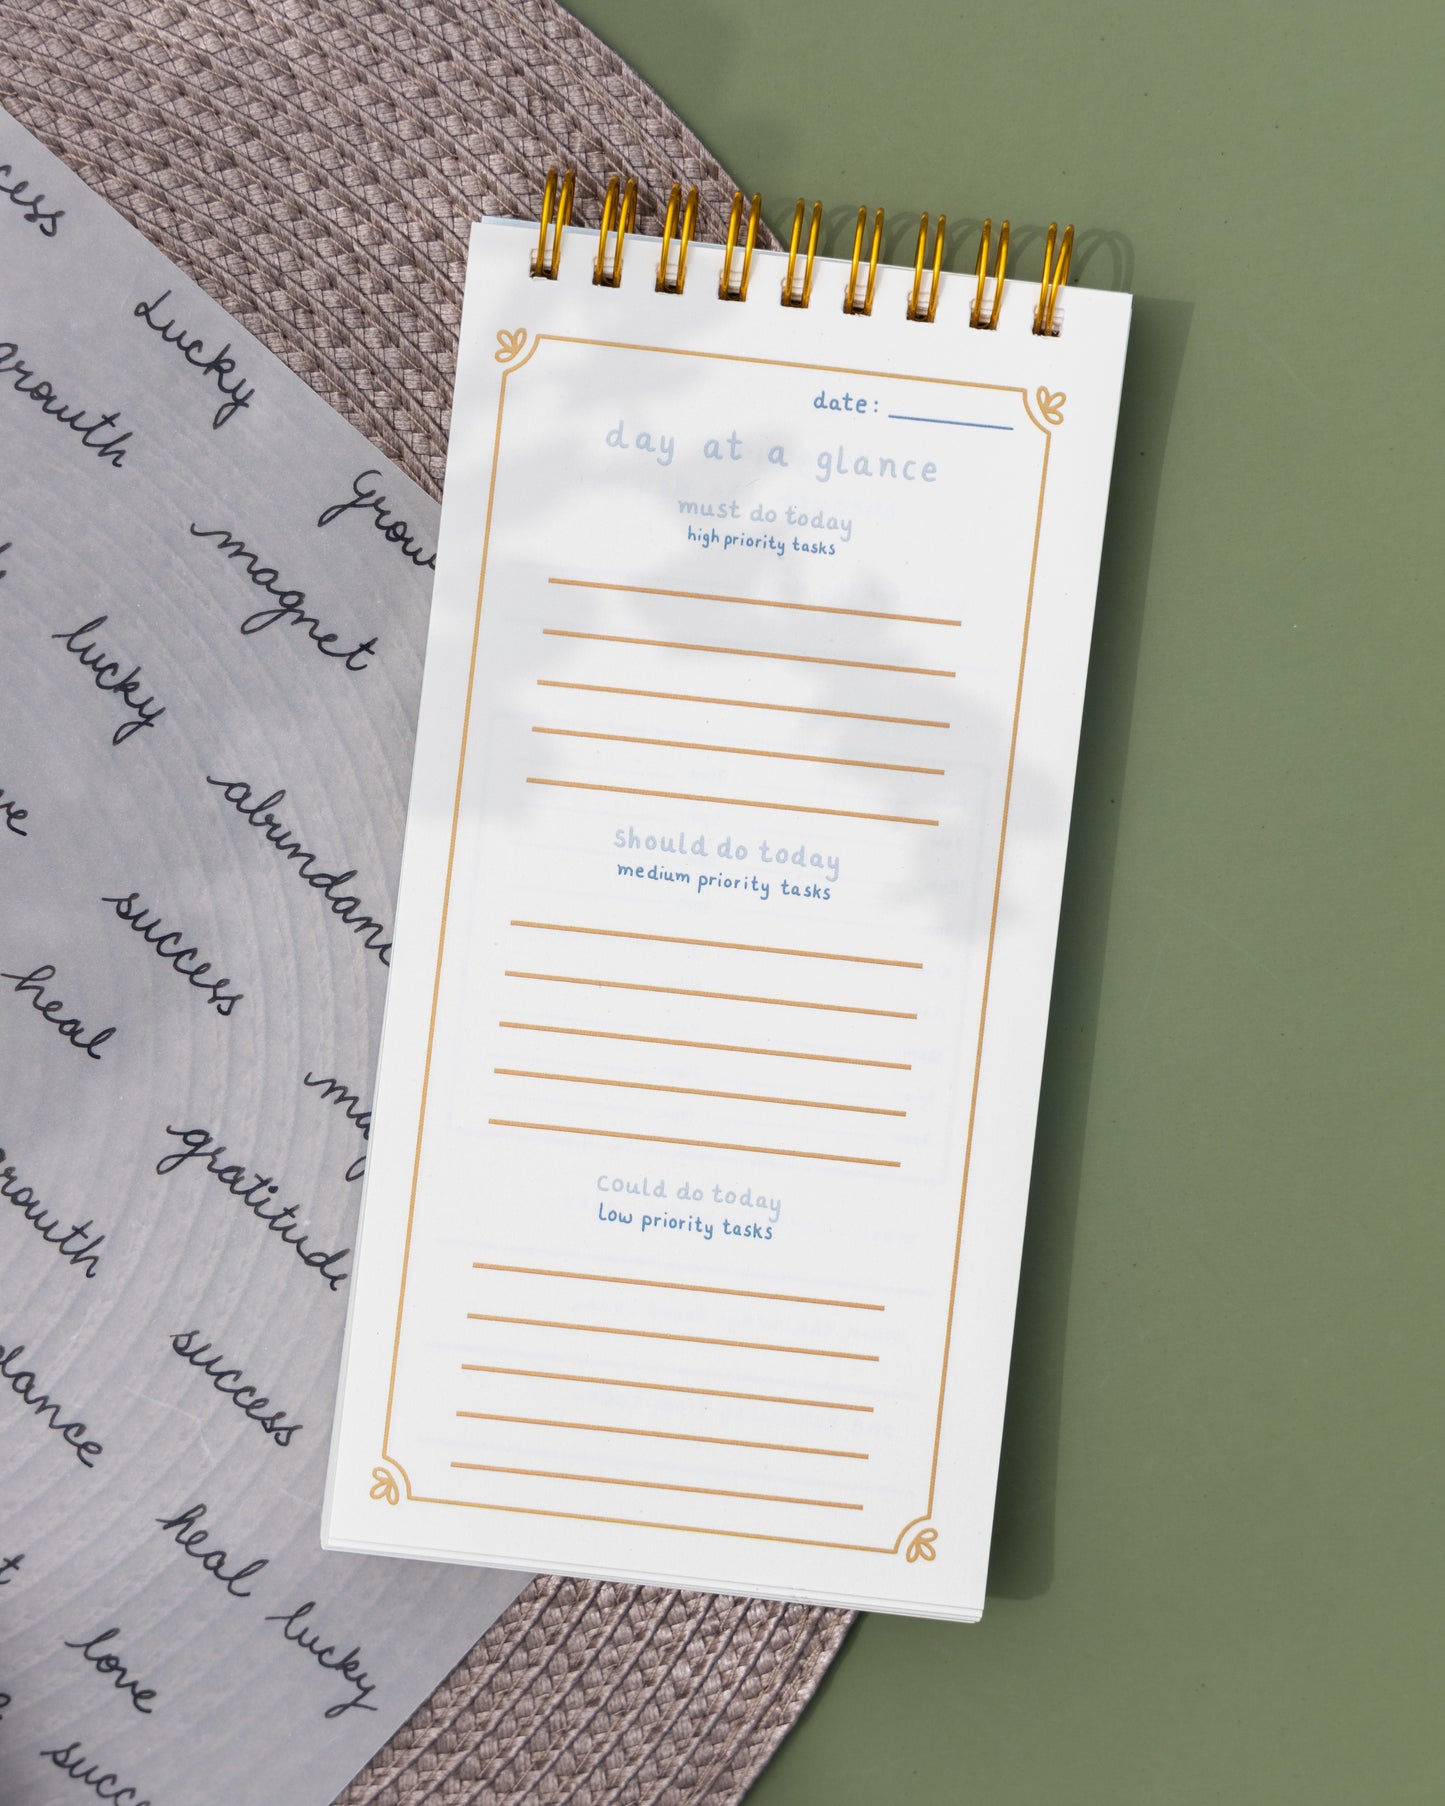 date:
day at a glance
must do today
high priority tasks
should do today
medium priority tasks
could do today
low priority tasks
Lucky
growth
magnet
lucky
success
heal
gratitude
success
heal
lucky
love